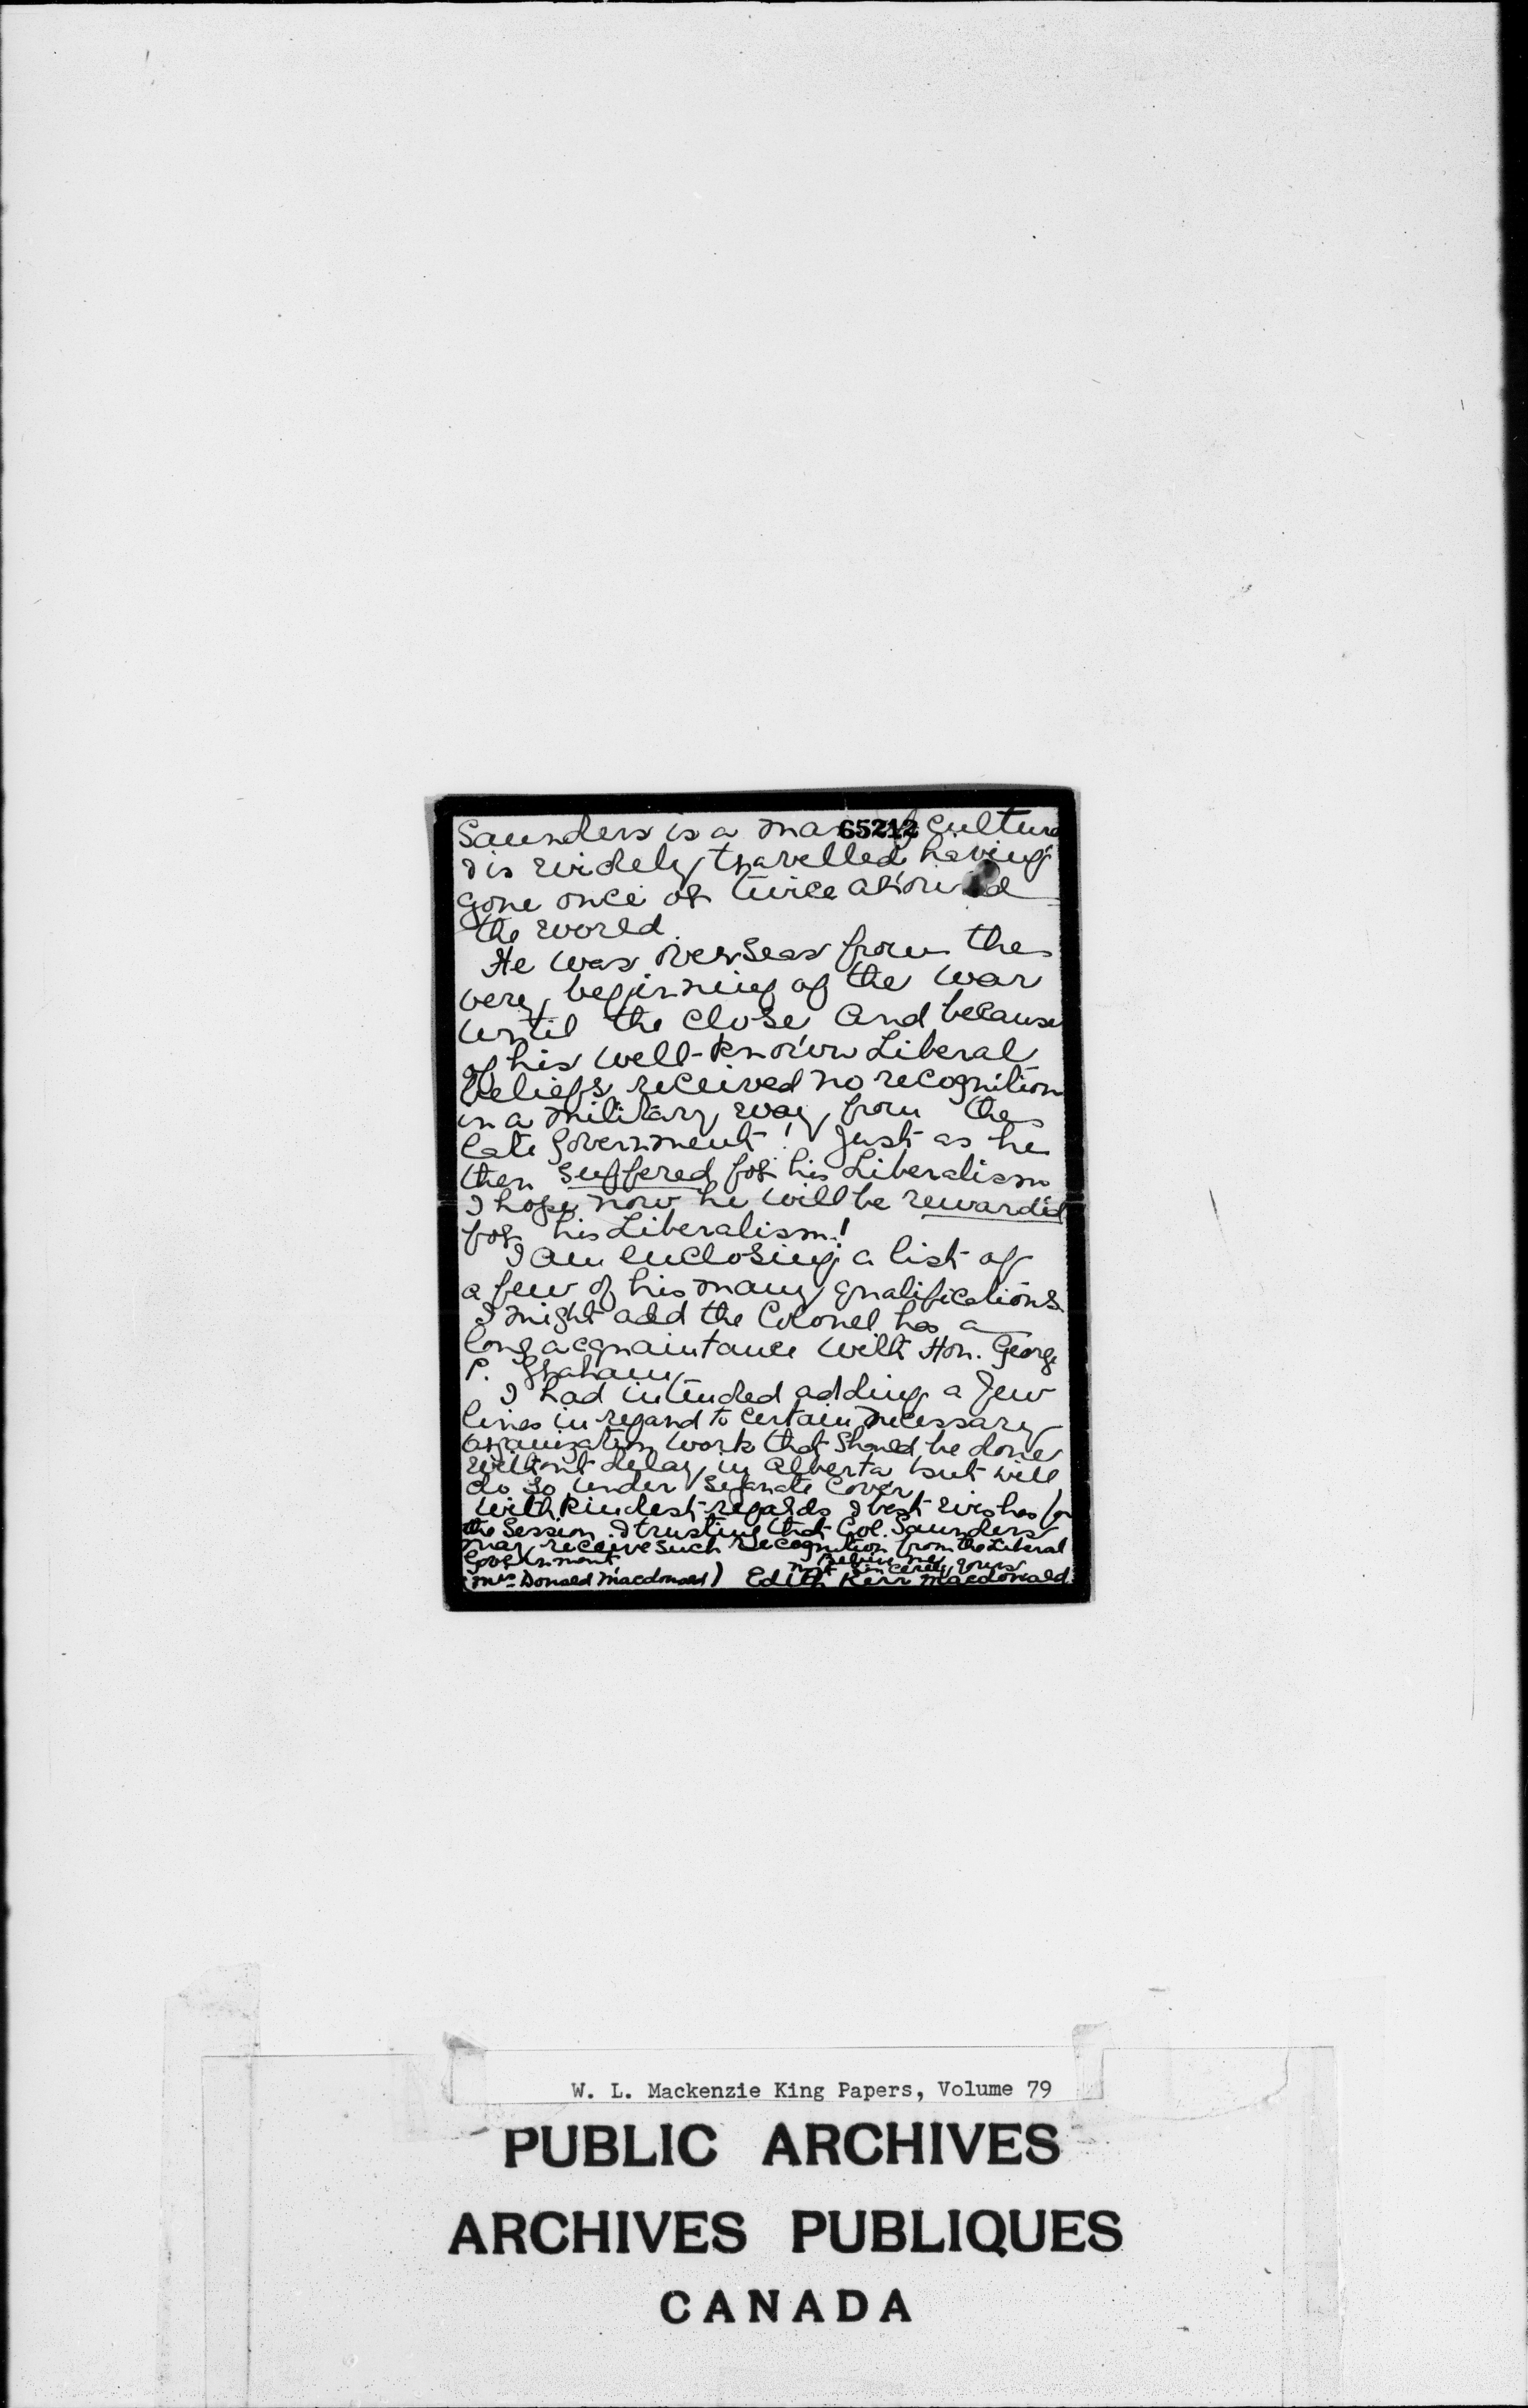 65212
Saunders is a man of culture
& is widely travelled having
gone once or twice around
the world.
He was overseas from the
very beginning of the war
until the close and because
of his well-known Liberal
beliefs received no recognition
in a military way from the
late Government! Just as he
then suffered for his Liberalism
I hope now he will be rewarded
for his Liberalism!
I am enclosing a list of
a few of his many qualifications.
I might add the Colonel has a
long acquaintance with Hon. George
P. Graham.
I had intended adding a few
lines in regard to certain necessary
organization work that should be done
without delay in Alberta but will
do so under separate cover.
With kindest regards & best wishes for
the Session. & trusting that Col. Saunders
may receive such recognition from the Liberal
Government
Believe me
most sincerely yours
(Mrs Donald Macdonald) Edith Kerr Macdonald.
W. L. Mackenzie King Papers, Volume 79
PUBLIC ARCHIVES
ARCHIVES PUBLIQUES
CANADA